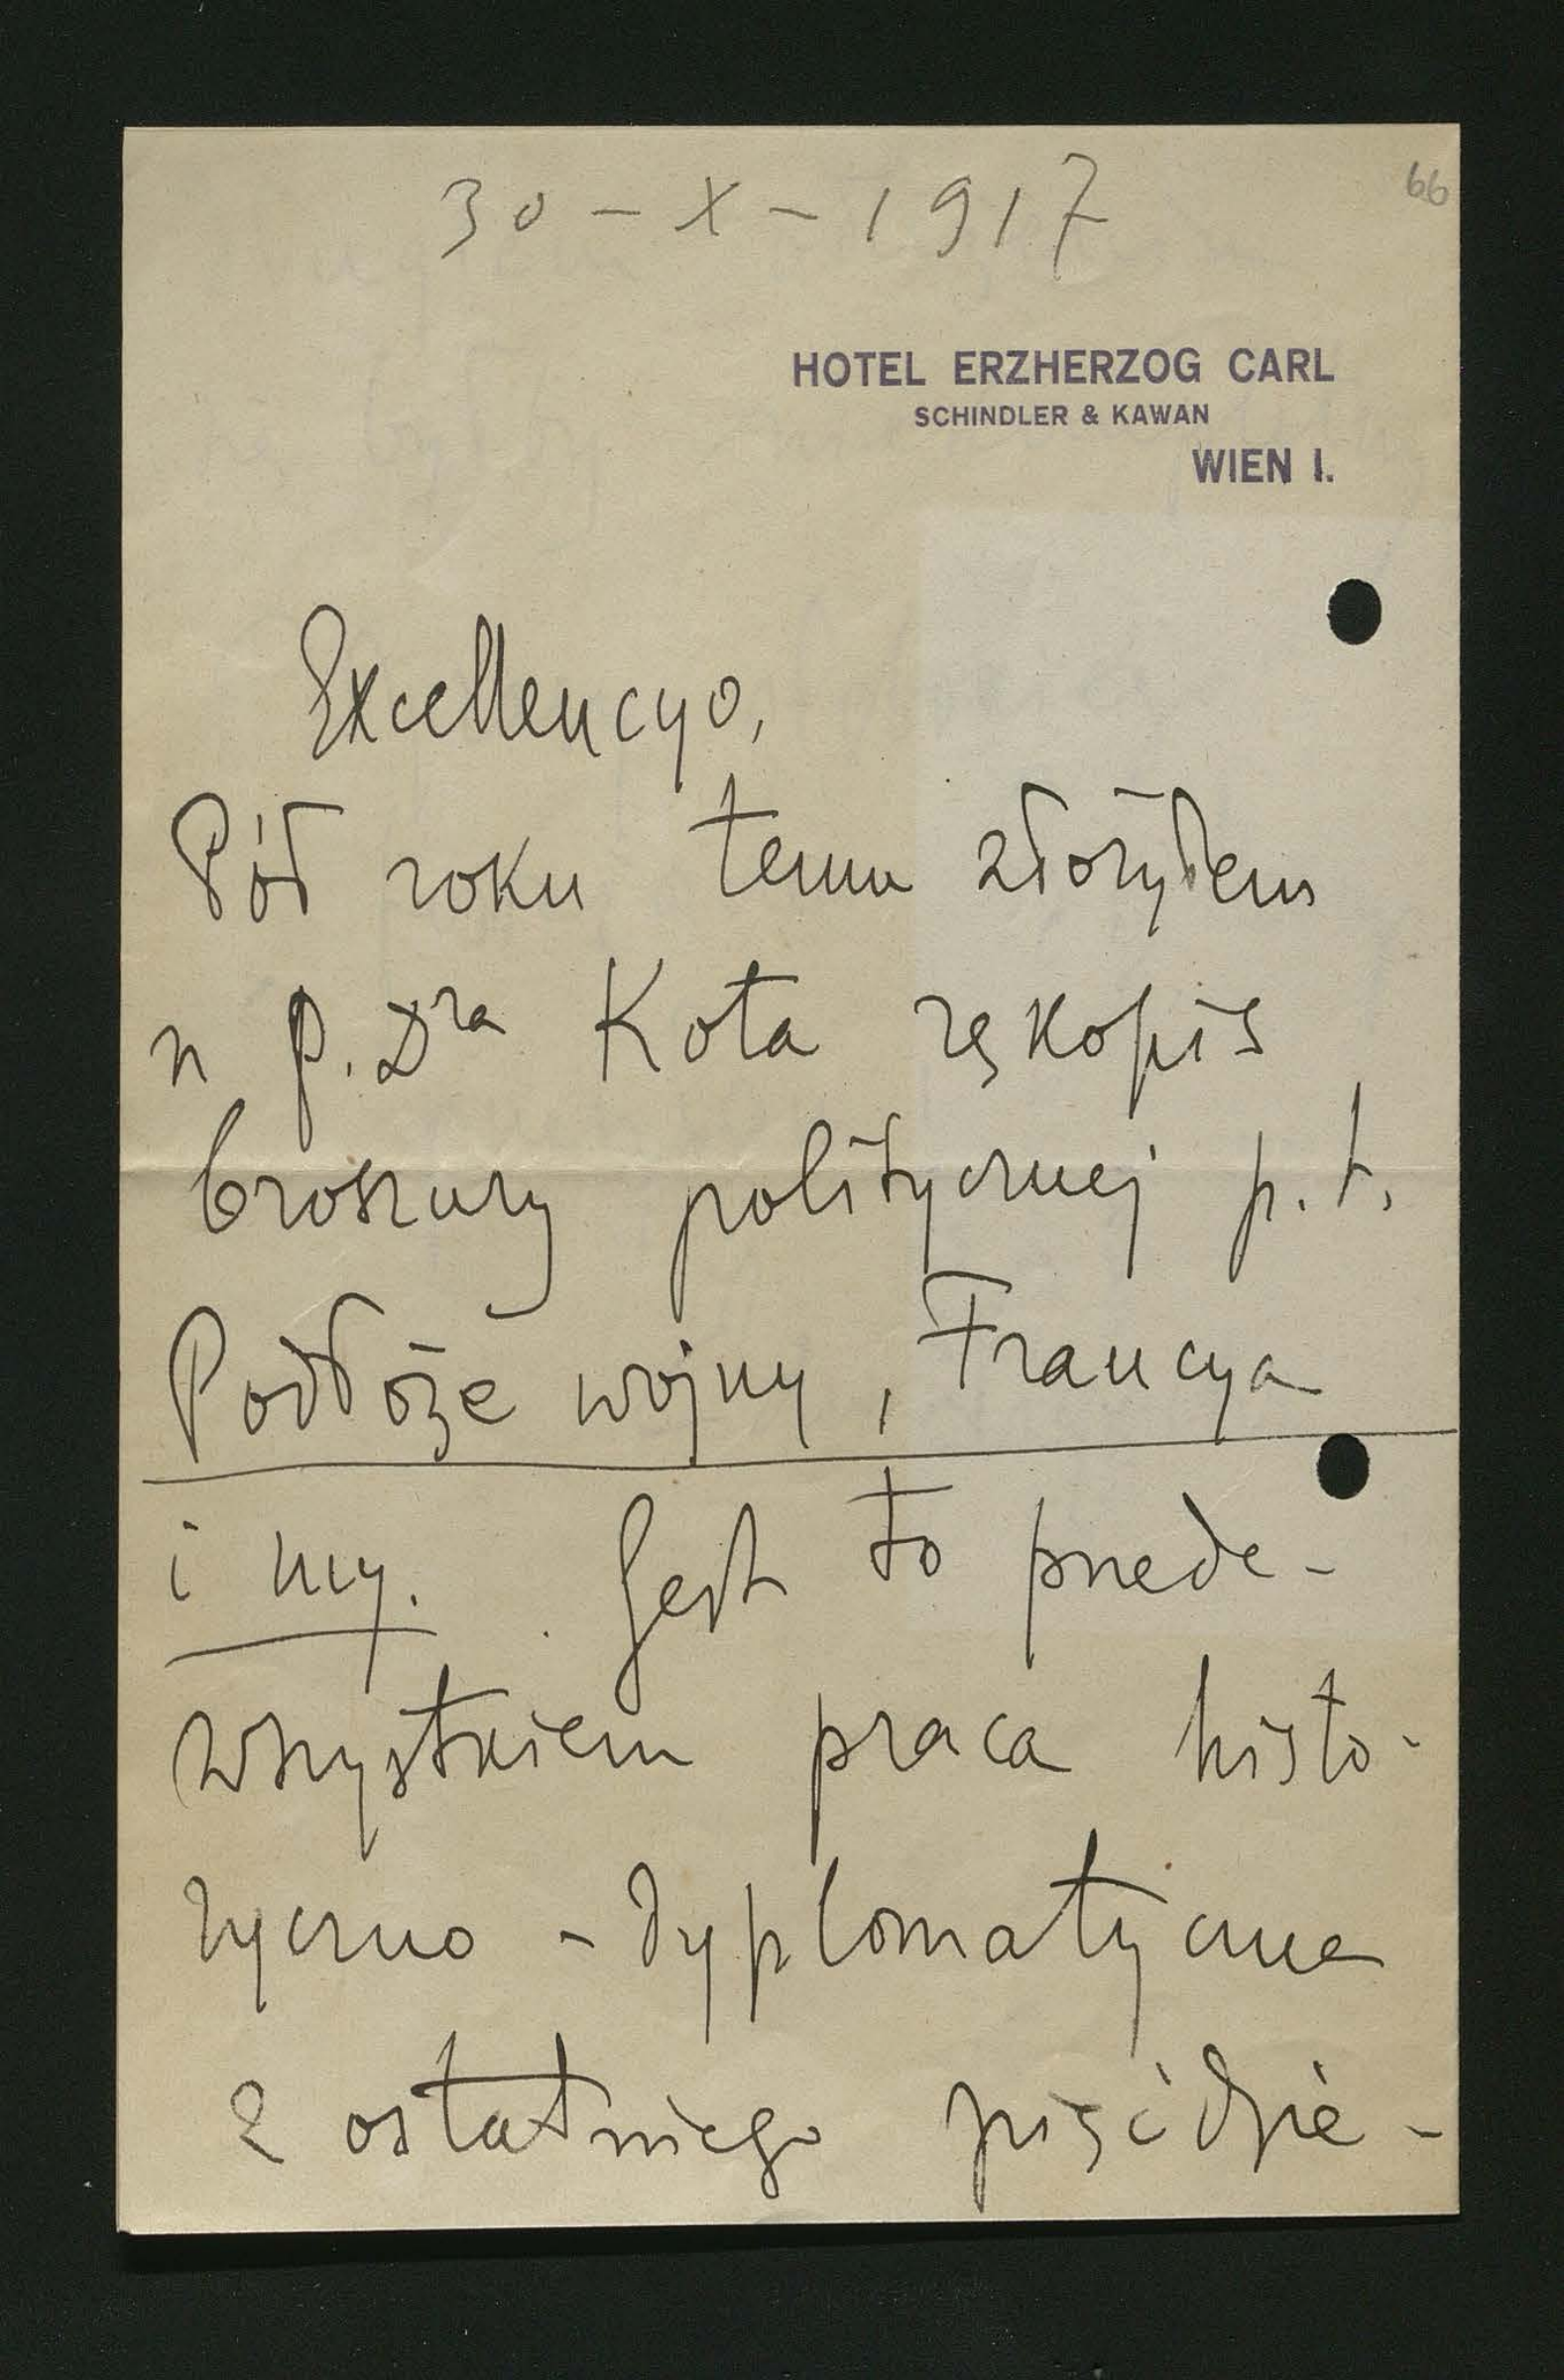 66
30 - X - 1917
HOTEL ERZHERZOG CARL
SCHINDLER & KAWAN
WIEN I.
Excellencyo,
Pół roku temu złożyłem
u p. Dra Kota rękopis
broszury politycznej p. t.
Podłoże wojny, Francya
i my. Jest to przede-
wszystkiem praca histo-
ryczno - dyplomatyczna
z ostatniego pięćdzie-